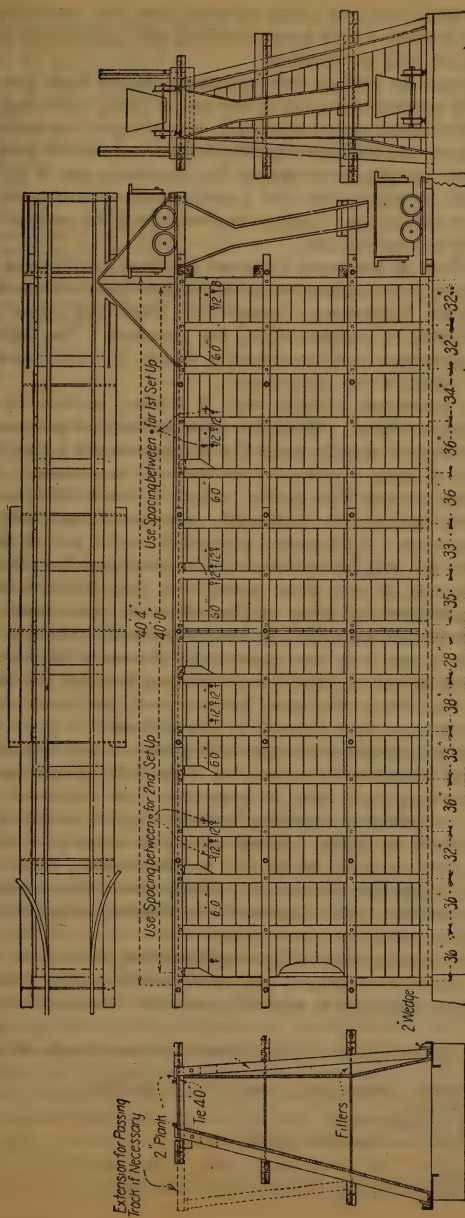 Extension for Passing
Track if Necessary
2" Plank
Tie 4'0"
Fillers
2" Wedge
40' 4"
40' 0"
Use Spacing between • for 2nd Set Up
Use Spacing between • for 1st Set Up
6'0"
12" 12"
6'0"
12" 12"
6'0"
12" 12"
6'0"
12" 12"
6'0"
36" 36" 32" 36" 35" 38" 28" 35" 33" 36" 36" 34" 32" 32"